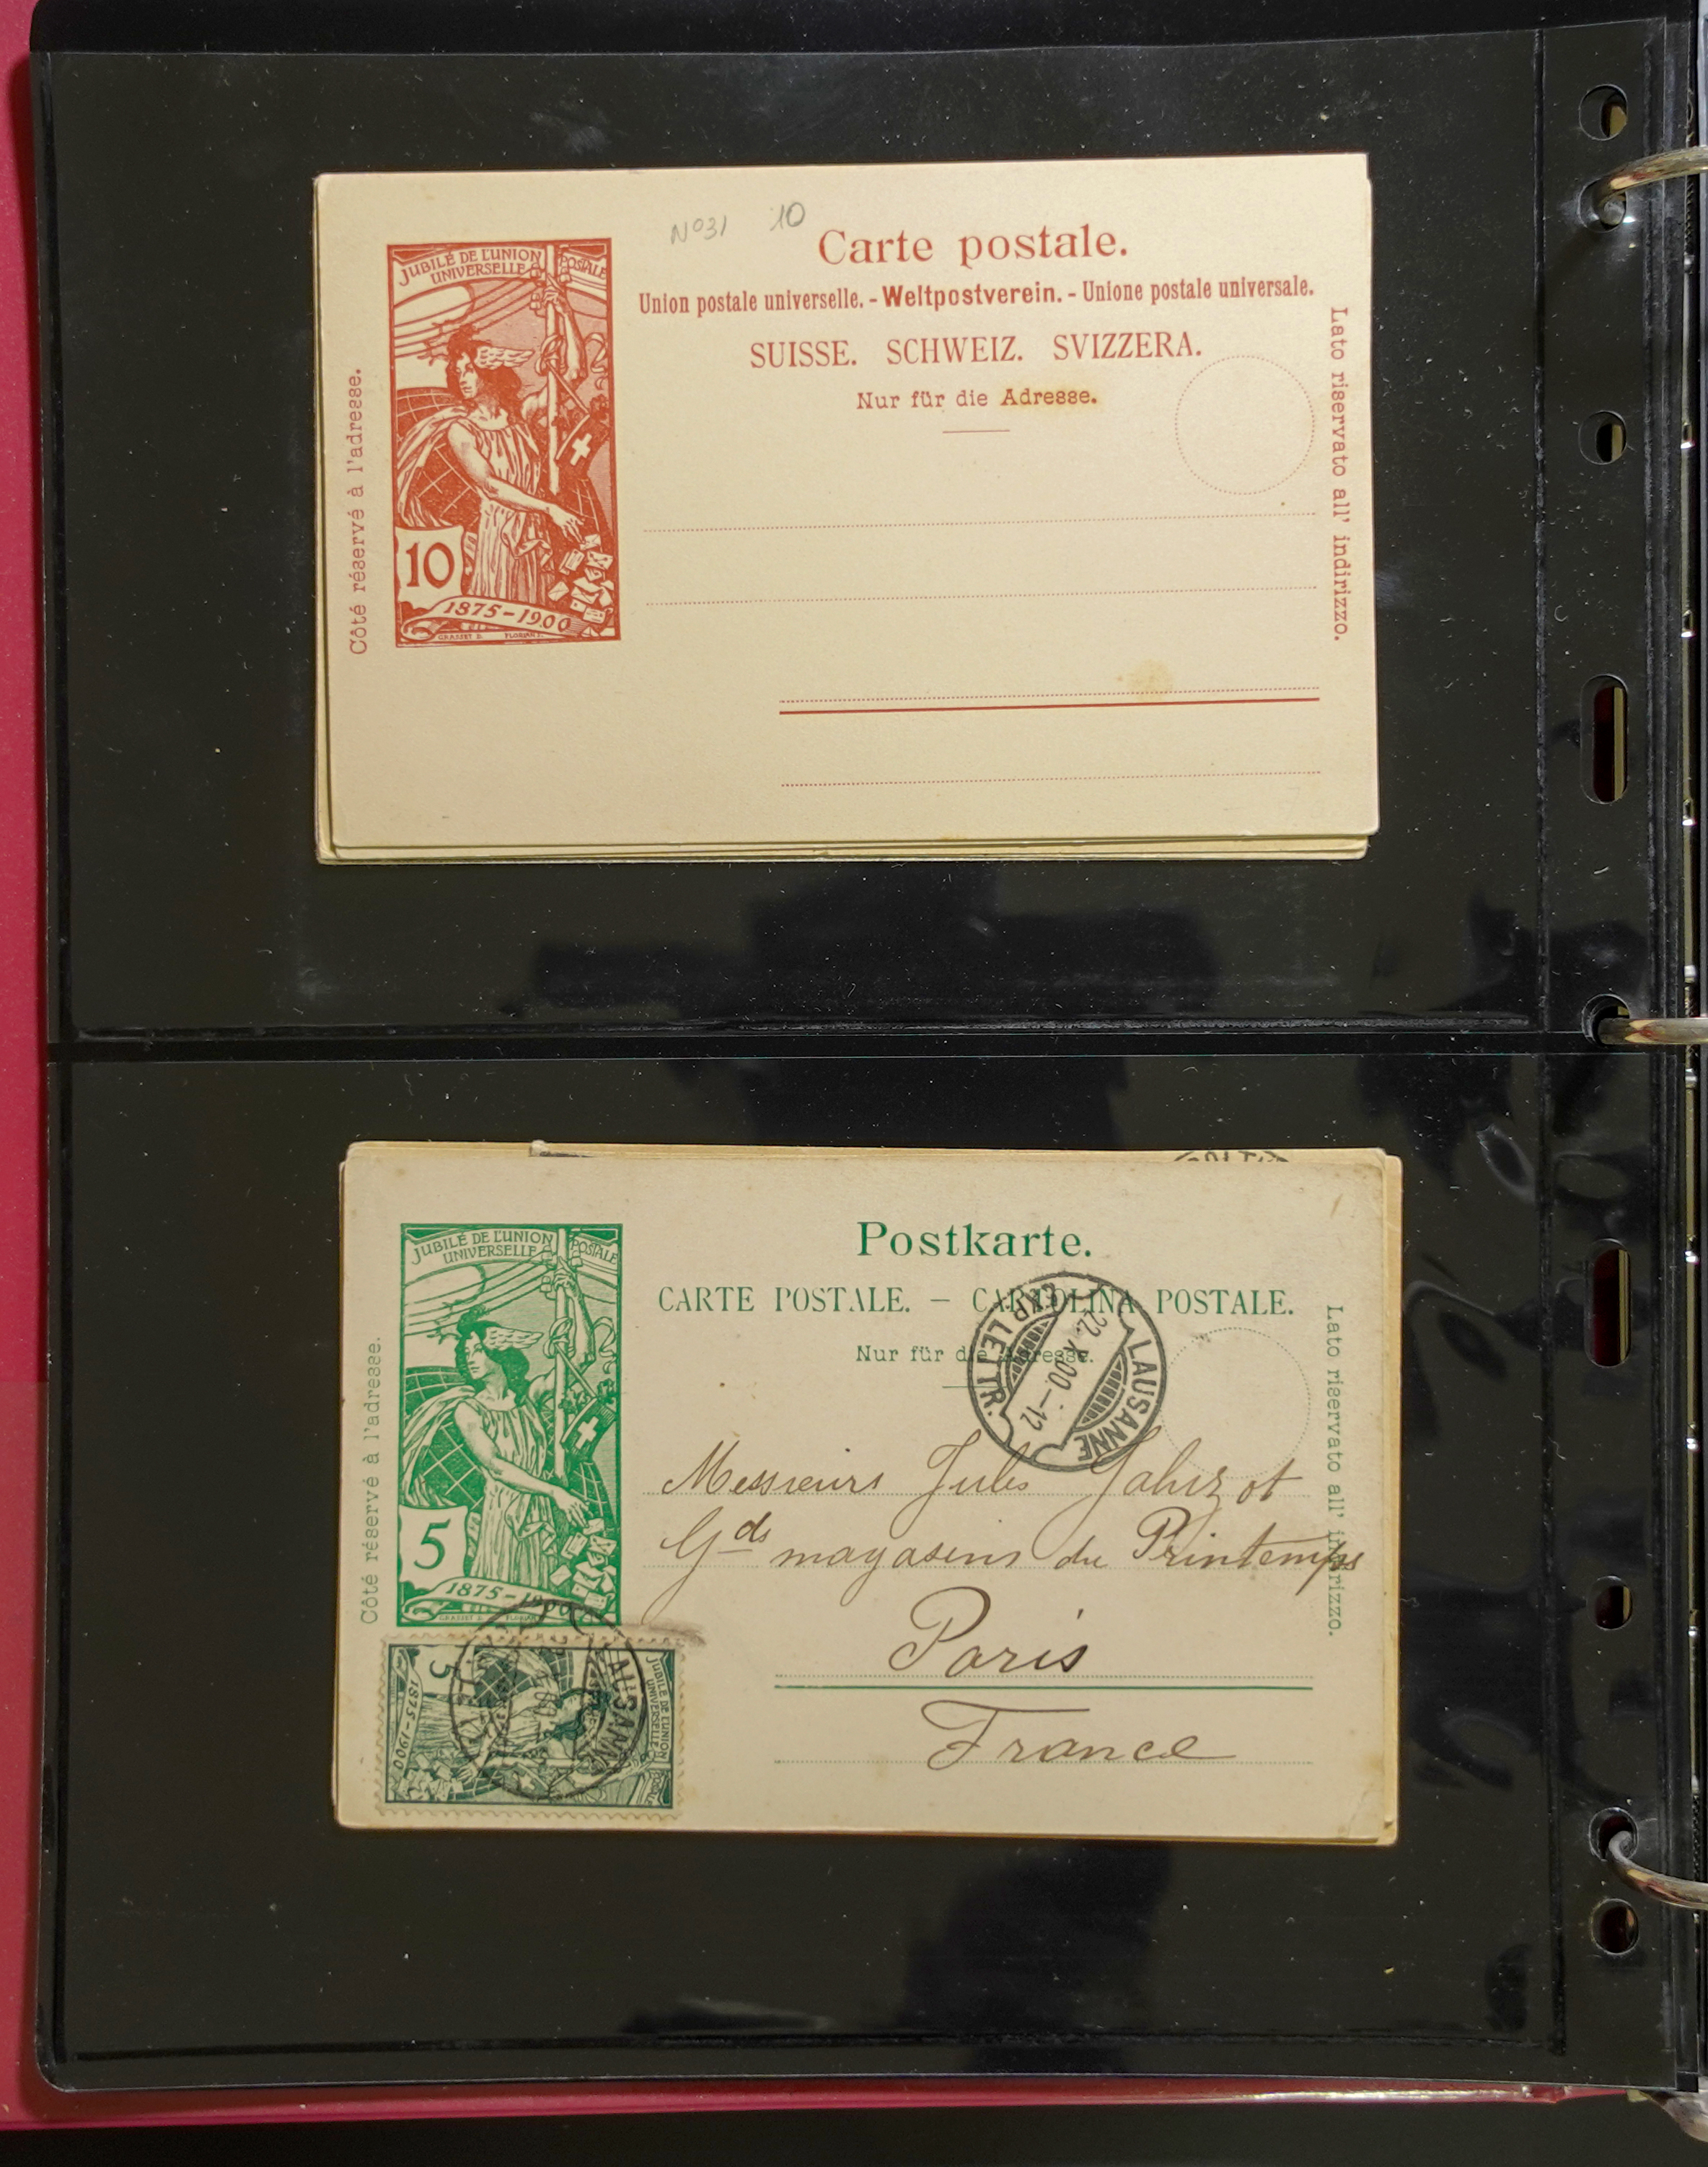 Nº31 10
JUBILÉ DE L'UNION POSTALE
UNIVERSELLE
Carte postale.
Union postale universelle. - Weltpostverein. - Unione postale universale.
SUISSE. SCHWEIZ. SVIZZERA.
Nur für die Adresse.
Côté réservé à l'adresse.
Lato riservato all' indirizzo.
10
1875-1900
GRASSET D. FLORIAN S.
JUBILÉ DE L'UNION POSTALE
UNIVERSELLE
Postkarte.
CARTE POSTALE. — CARTOLINA POSTALE.
Nur für die Adresse.
Côté réservé à l'adresse.
Lato riservato all' indirizzo.
LAUSANNE
22.X.00.-12
EXP. LETTR.
5
1875-1900
GRASSET D. FLORIAN
Messieurs Jules Jaluzot
Gds magasins du Printemps
Paris
France
JUBILÉ DE L'UNION
UNIVERSELLE
POSTALE
5
1875-1900
LAUSANNE